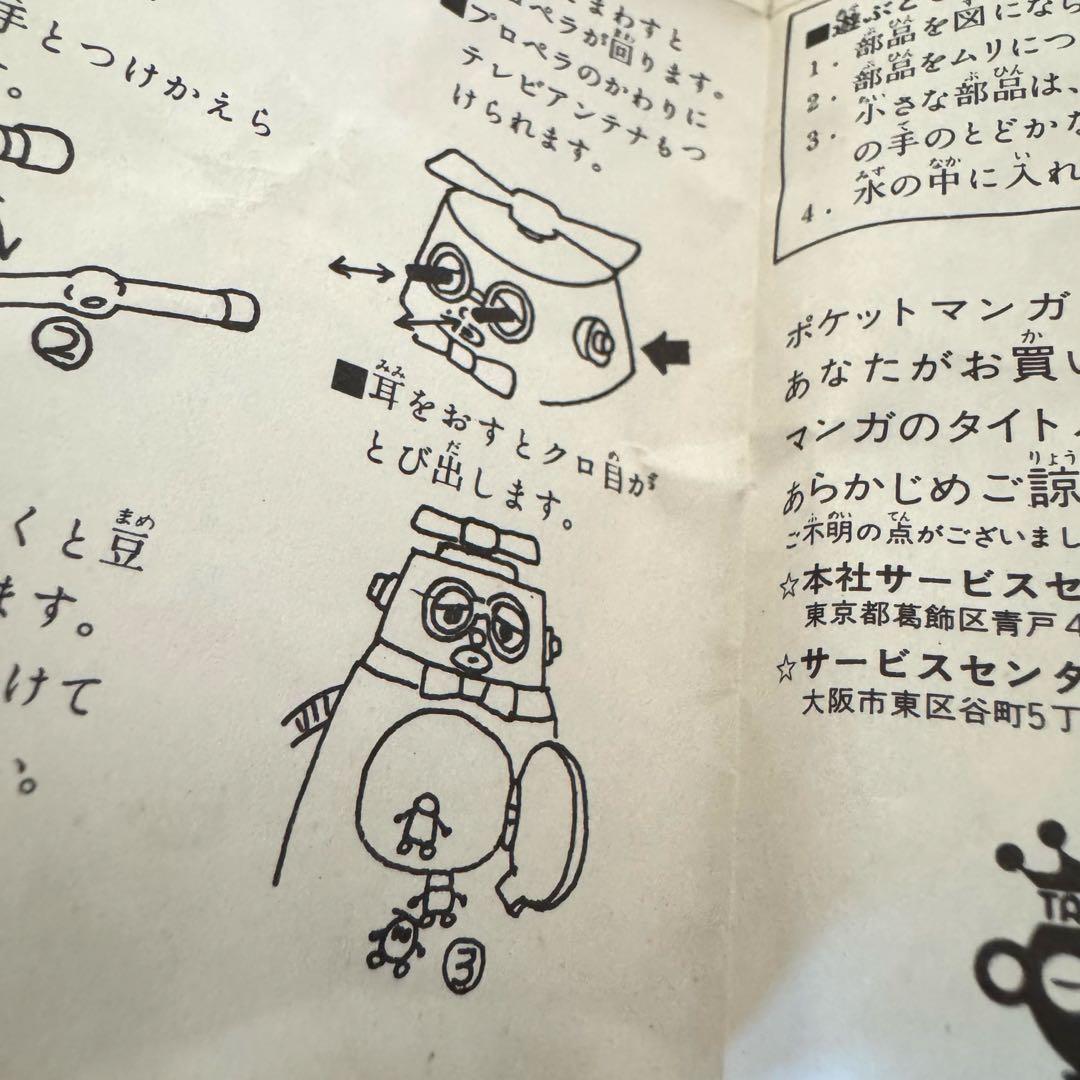 手とつけかえら
す。
②
くと豆
ます。
けて
まわすと
ペラが回ります。
プロペラのかわりに
テレビアンテナもつ
けられます。
■耳をおすとクロ目が
とび出します。
③
1. 部品を図になら
2. 部品をムリにつ
3. 小さな部品は、
の手のとどかな
4. 水の中に入れ
ポケットマンガ
あなたがお買い
マンガのタイト
あらかじめご諒
ご不明の点がございまし
☆本社サービスセ
東京都葛飾区青戸4
☆サービスセンタ
大阪市東区谷町5丁
TA